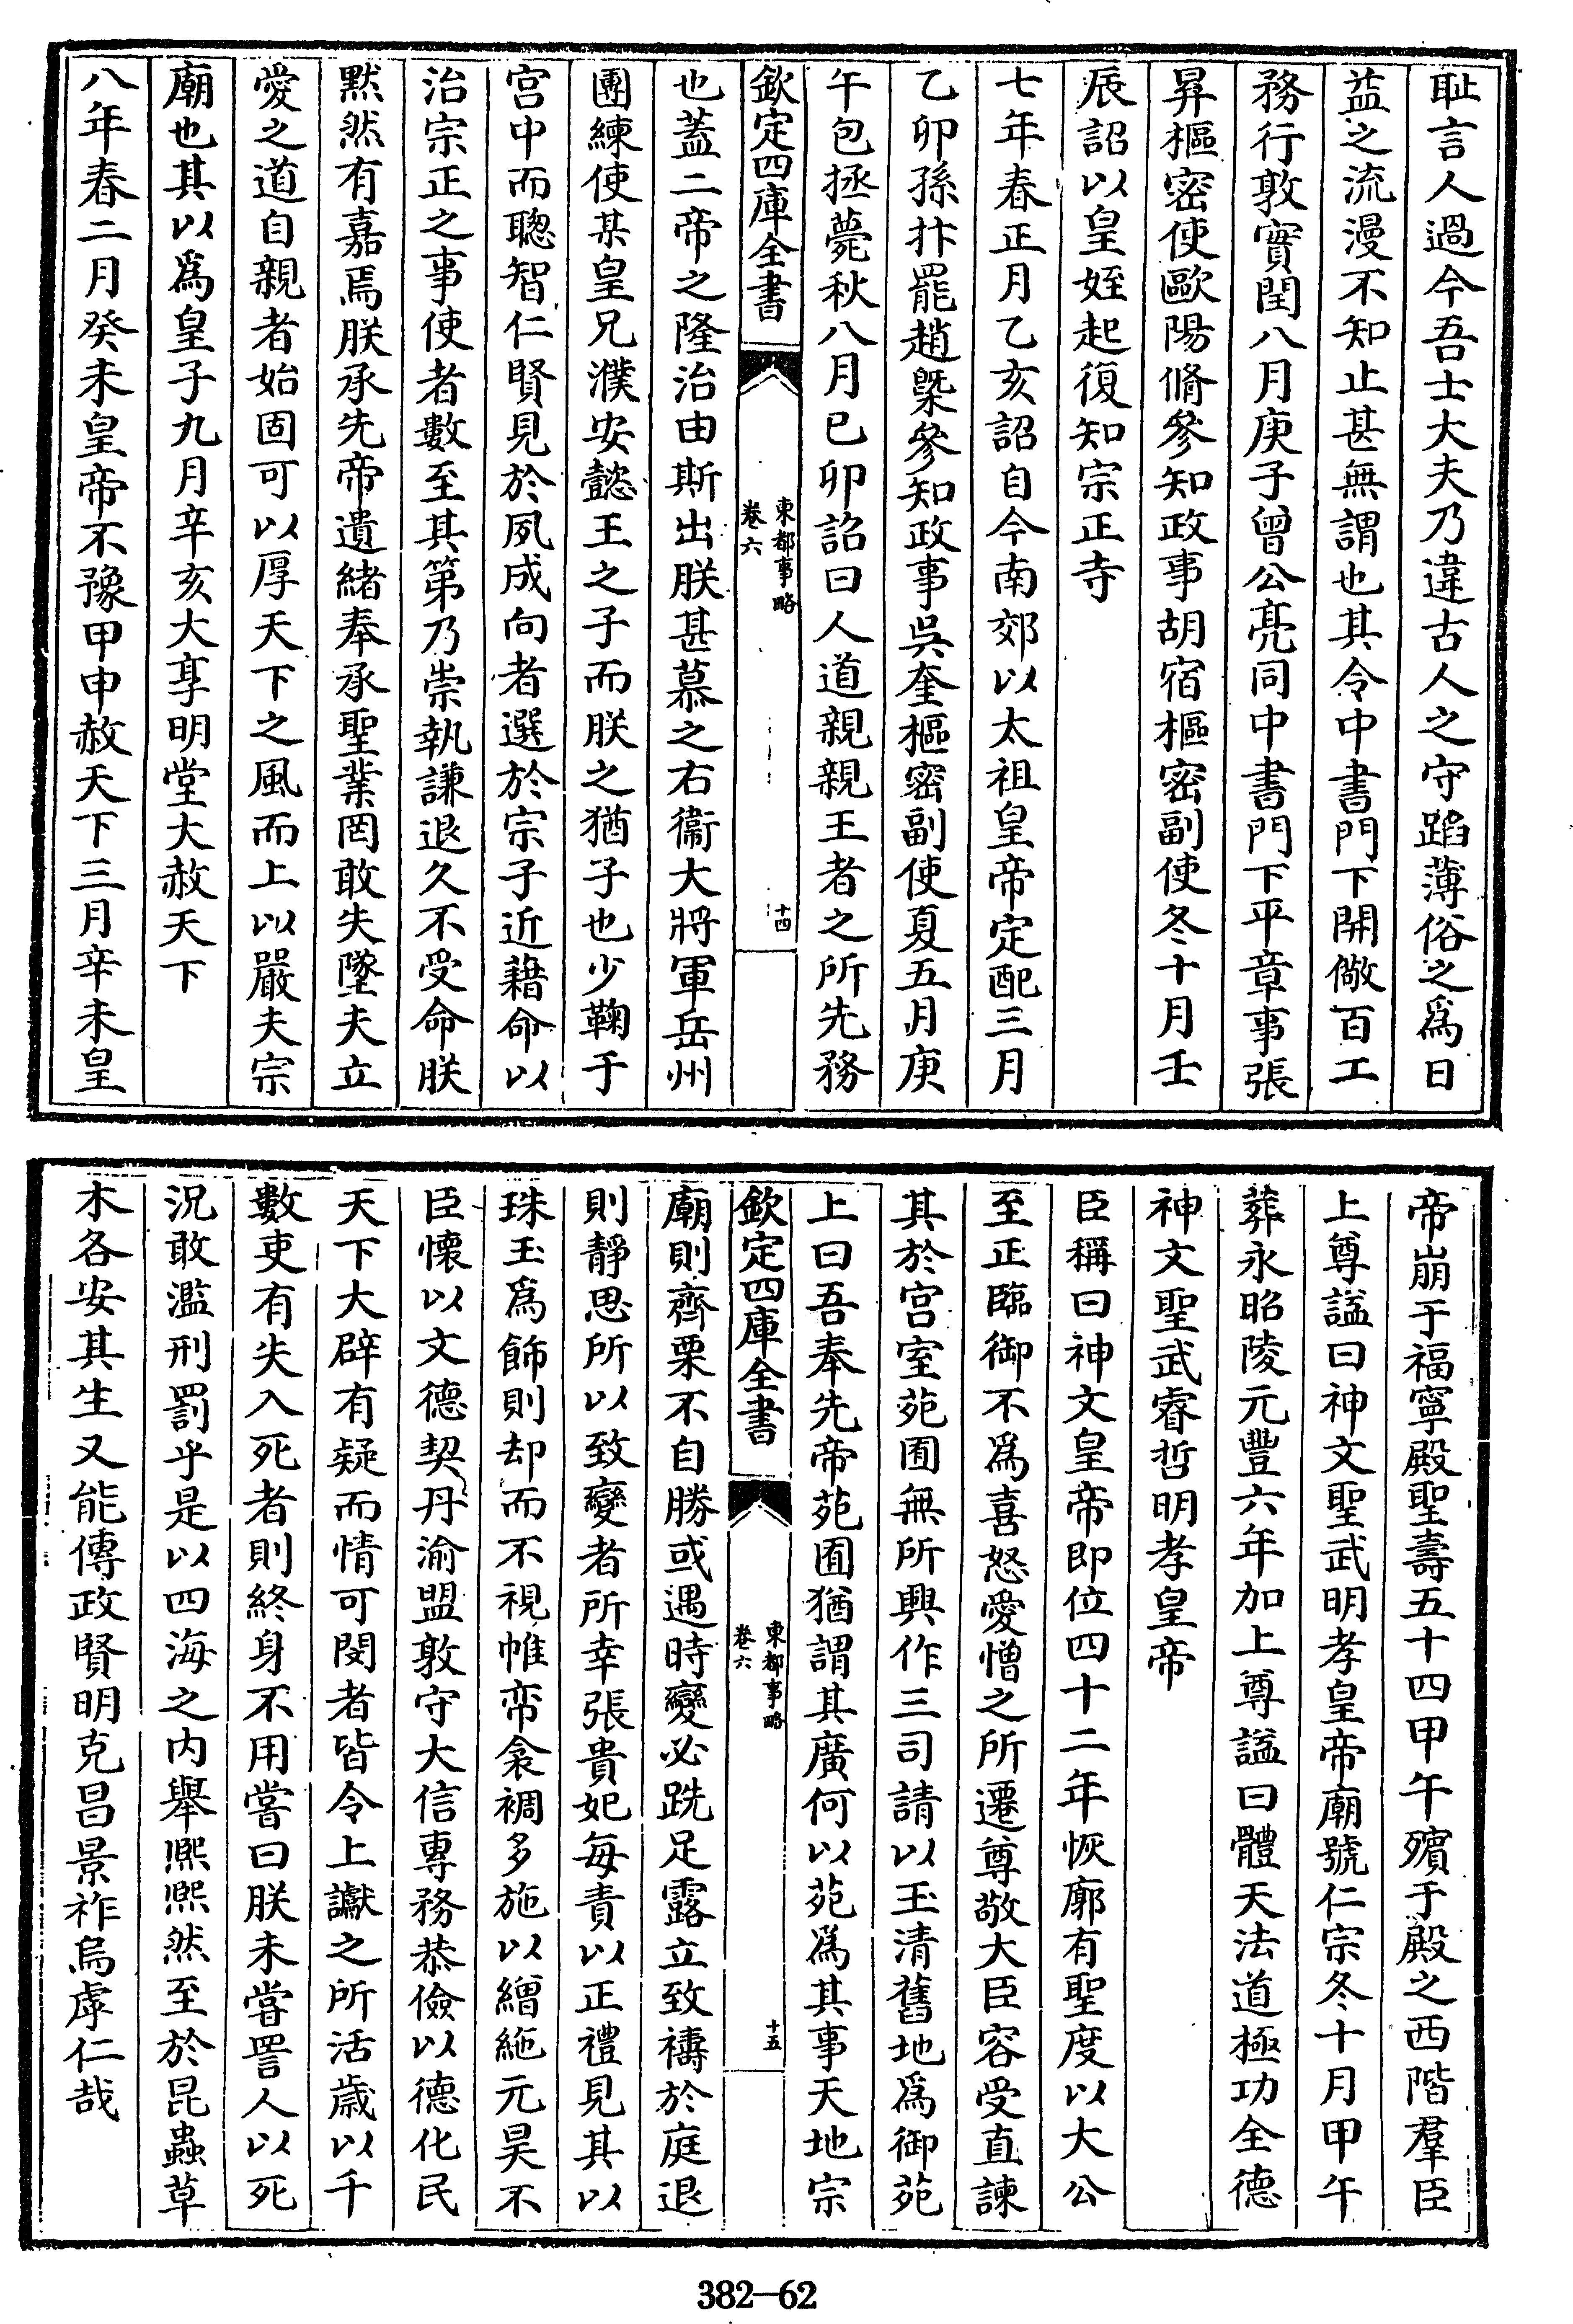 耻言人過今吾士大夫乃違古人之守蹈薄俗之爲日
益之流漫不知止甚無謂也其令中書門下開儆百工
務行敦實閏八月庚子曾公亮同中書門下平章事張
昇樞密使歐陽脩參知政事胡宿樞密副使冬十月壬
辰詔以皇姪起復知宗正寺
七年春正月乙亥詔自今南郊以太祖皇帝定配三月
乙卯孫抃罷趙槩參知政事吳奎樞密副使夏五月庚
午包拯薨秋八月已卯詔曰人道親親王者之所先務
欽定四庫全書
東都事略
卷六
十四
也蓋二帝之隆治由斯出朕甚慕之右衞大將軍岳州
團練使某皇兄濮安懿王之子而朕之猶子也少鞠于
宮中而聰智仁賢見於夙成向者選於宗子近藉命以
治宗正之事使者數至其第乃崇執謙退久不受命朕
默然有嘉焉朕承先帝遺緒奉承聖業罔敢失墜夫立
愛之道自親者始固可以厚天下之風而上以嚴夫宗
廟也其以爲皇子九月辛亥大享明堂大赦天下
八年春二月癸未皇帝不豫甲申赦天下三月辛未皇
帝崩于福寧殿聖壽五十四甲午殯于殿之西階羣臣
上尊諡曰神文聖武明孝皇帝廟號仁宗冬十月甲午
葬永昭陵元豐六年加上尊諡曰體天法道極功全德
神文聖武睿哲明孝皇帝
臣稱曰神文皇帝即位四十二年恢廓有聖度以大公
至正臨御不爲喜怒愛憎之所遷尊敬大臣容受直諫
其於宮室苑囿無所興作三司請以玉清舊地爲御苑
上曰吾奉先帝苑囿猶謂其廣何以苑爲其事天地宗
欽定四庫全書
東都事略
卷六
十五
廟則齊栗不自勝或遇時變必跣足露立致禱於庭退
則靜思所以致變者所幸張貴妃每責以正禮見其以
珠玉爲飾則却而不視帷帟衾裯多施以繒絁元昊不
臣懷以文德契丹渝盟敦守大信專務恭儉以德化民
天下大辟有疑而情可閔者皆令上讞之所活歲以千
數吏有失入死者則終身不用嘗曰朕未嘗詈人以死
況敢濫刑罰乎是以四海之内舉熙熙然至於昆蟲草
木各安其生又能傳政賢明克昌景祚烏虖仁哉
382—62